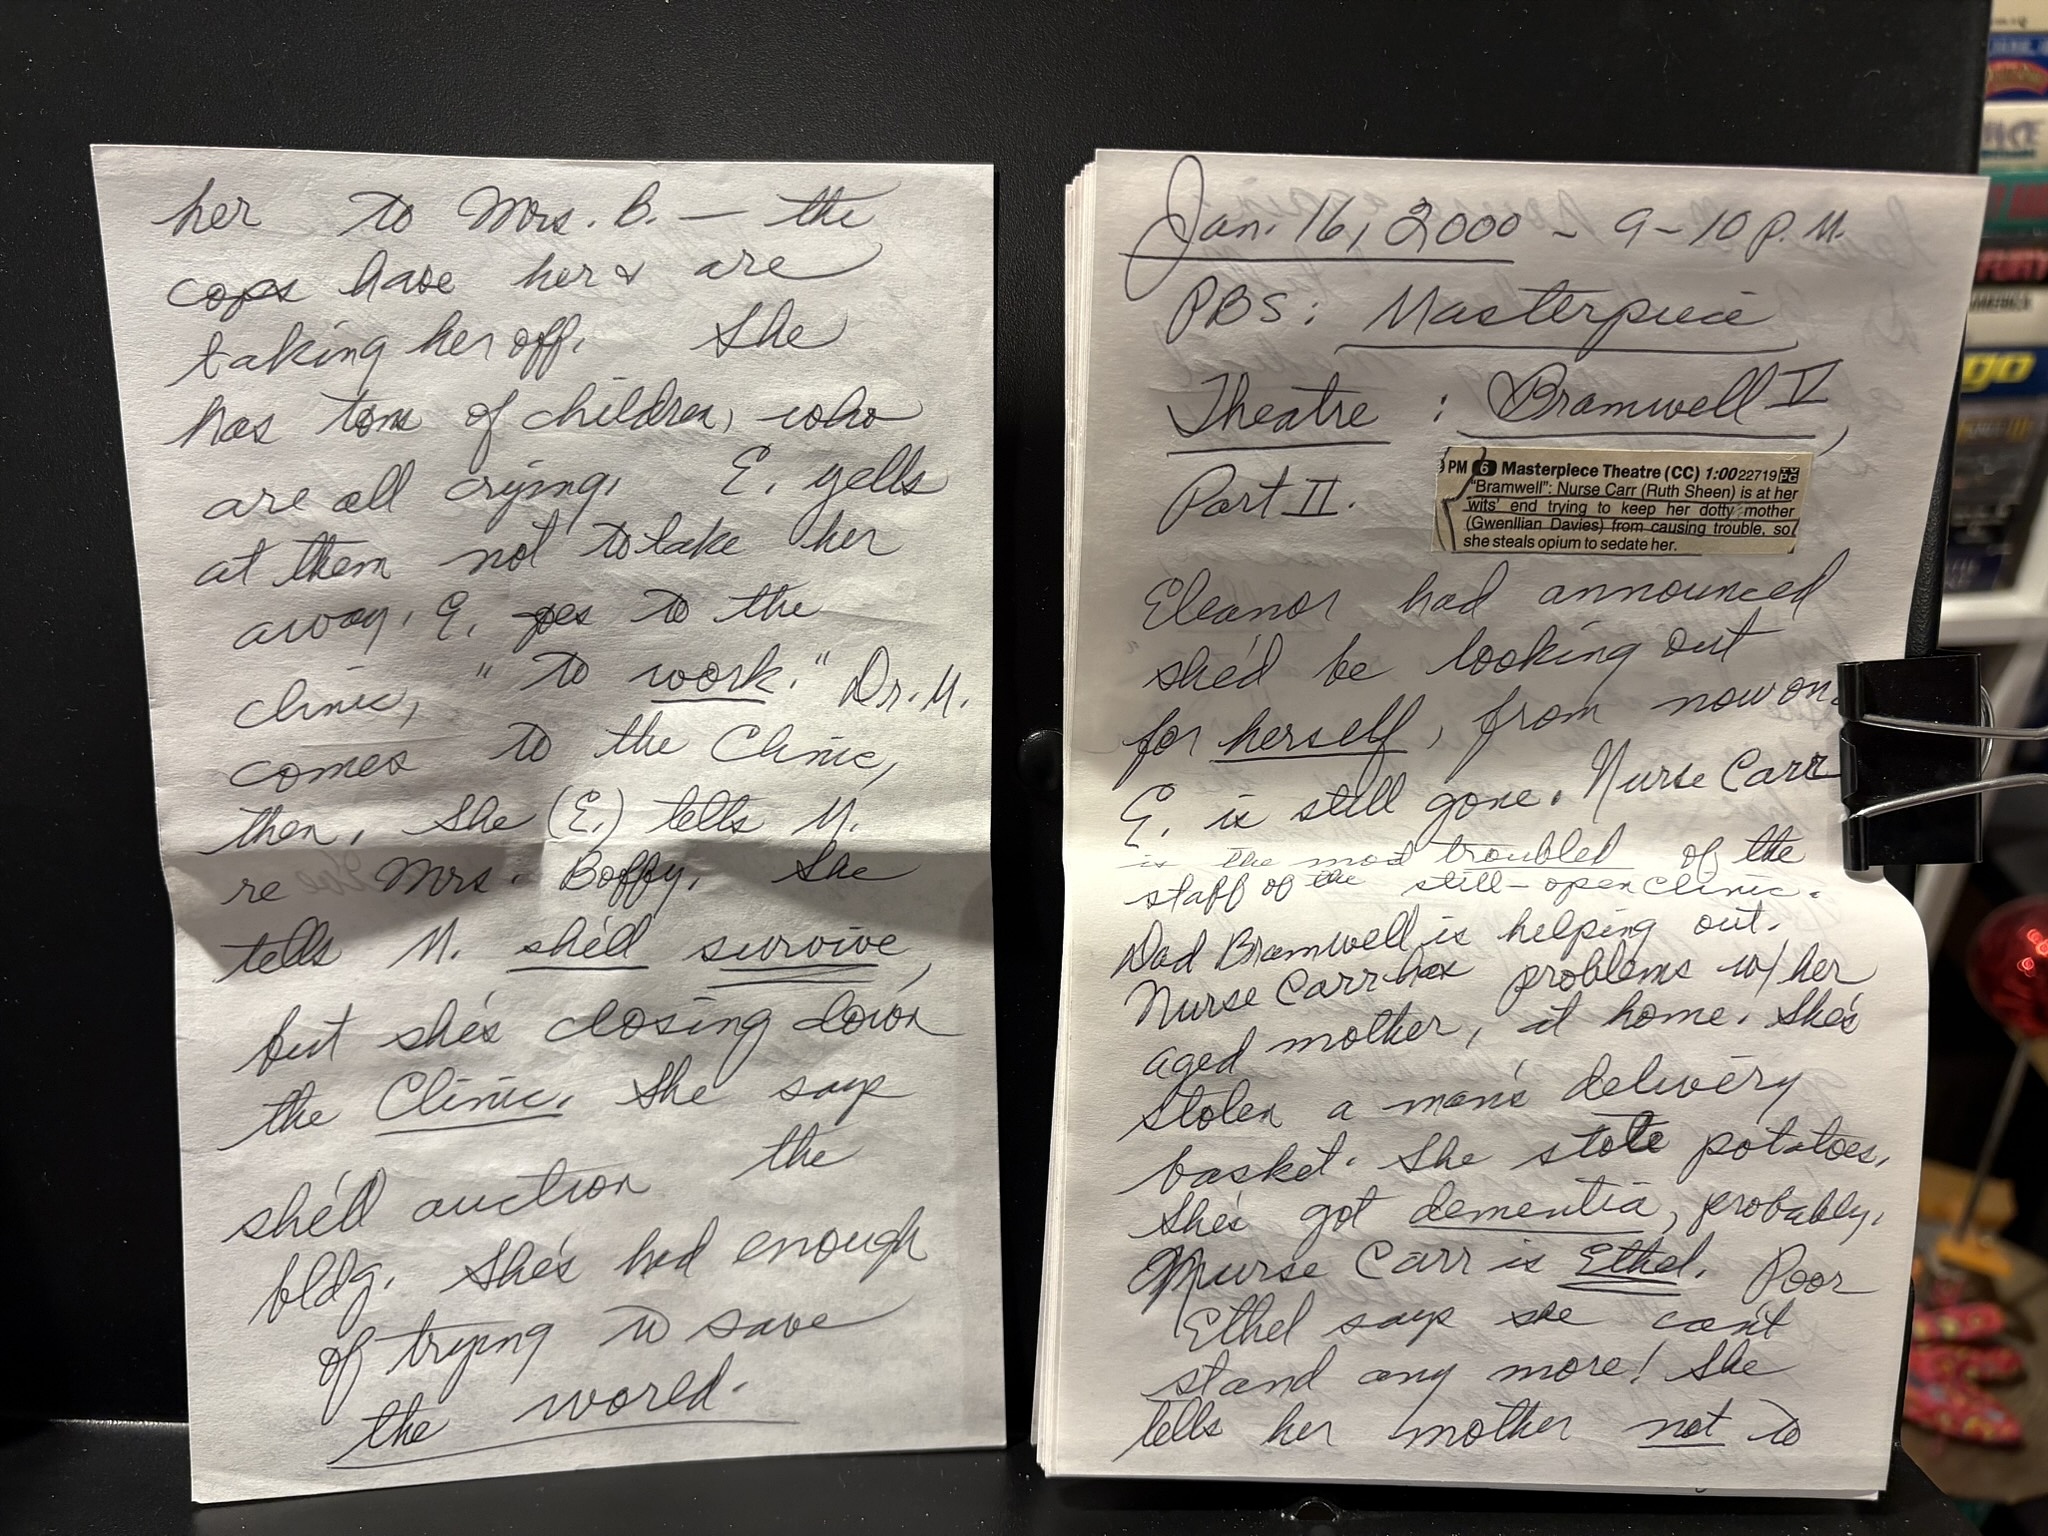 her to Mrs. B. — the
cops have her & are
taking her off. She
has tons of children, who
are all crying. E. yells
at them not to take her
away. E. goes to the
clinic, "to work." Dr. M.
comes to the Clinic,
then. She (E.) tells M.
re Mrs. Boffy. She
tells M. she'll survive,
but she's closing down
the Clinic. She says
she'll auction the
bldg. She's had enough
of trying to save
the world.
Jan. 16, 2000 - 9-10 P.M.
PBS: Masterpiece
Theatre : Bramwell V,
Part II.
PM 6 Masterpiece Theatre (CC) 1:00 22719 PG
"Bramwell": Nurse Carr (Ruth Sheen) is at her
wits' end trying to keep her dotty mother
(Gwenllian Davies) from causing trouble, so
she steals opium to sedate her.
Eleanor had announced
she'd be looking out
for herself, from now on.
E. is still gone. Nurse Carr
is the most troubled of the
staff of the still-open clinic.
Dad Bramwell is helping out.
Nurse Carr has problems w/ her
aged mother, at home. She's
stolen a man's delivery
basket. She stole potatoes.
She's got dementia, probably.
Nurse Carr is Ethel. Poor
Ethel says she can't
stand any more! She
tells her mother not to
go